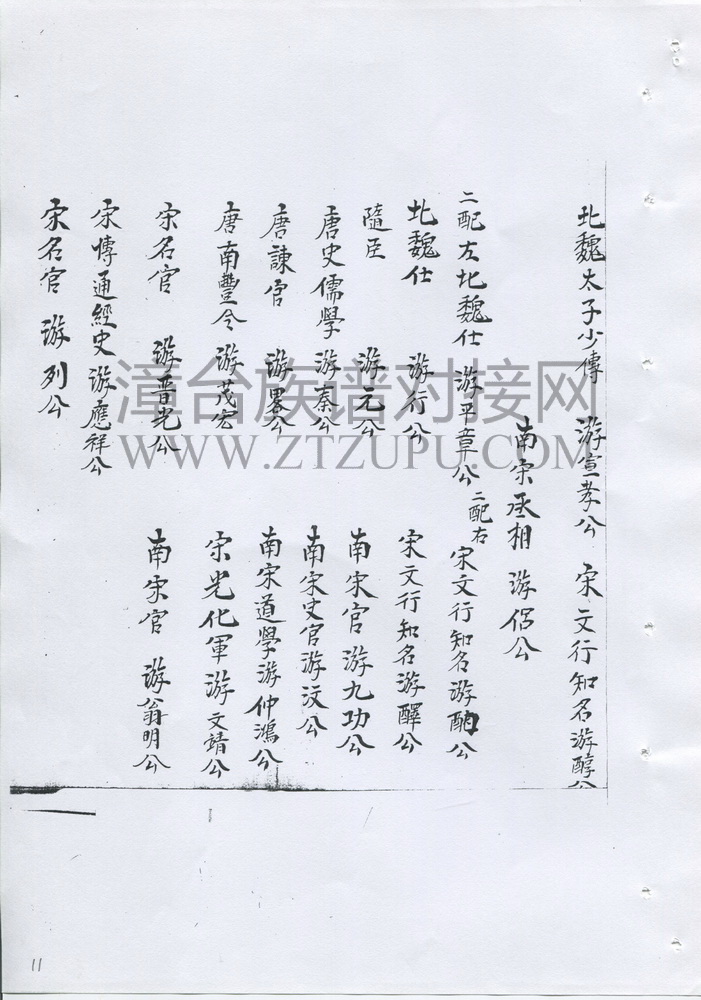 北魏太子少傅 游宣孝公 宋文行知名游醇公
南宋丞相 游侣公
二配左北魏仕 游平章公 二配右 宋文行知名游酢公
北魏仕 游行公 宋文行知名游醳公
隨臣 游元公 南宋官 游九功公
唐史儒學 游秦公 南宋史官游汶公
唐諫官 游畧公 南宋道學游仲鴻公
唐南豐令 游茂宏公 宋光化軍游文靖公
宋名官 游晋光公 南宋官 游翁明公
宋傳通經史 游應祥公
宋名官 游列公
漳台族谱对接网
WWW.ZTZUPU.COM
11